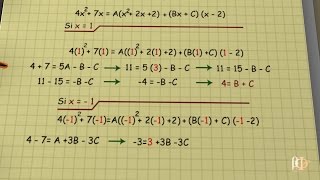 4x²+ 7x = A(x²+ 2x +2) + (Bx + C) (x - 2)
Si x = 1
4(1)²+ 7(1) =A((1)²+ 2(1) +2) +(B(1) +C) (1 - 2)
4 + 7 = 5A - B - C → 11 = 5 (3) - B - C → 11 = 15 - B - C
11 - 15 = -B -C → -4 = -B -C → 4= B + C
Si x = - 1
4(-1)²+ 7(-1)=A((-1)²+ 2(-1) +2) +(B(-1) + C)(-1 -2)
4 - 7= A +3B - 3C → -3=3 +3B -3C